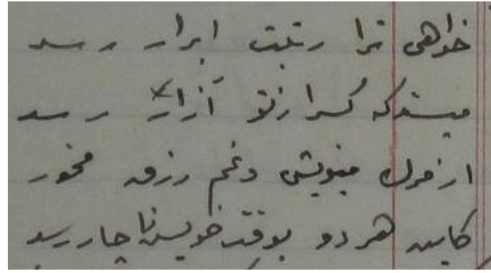 خواهی ترا رتبت ابرار رسد
مپسند که کس را ز تو آزار رسد
از مرگ میندیش و غم رزق مخور
کاین هر دو بوقت خویش ناچار رسد